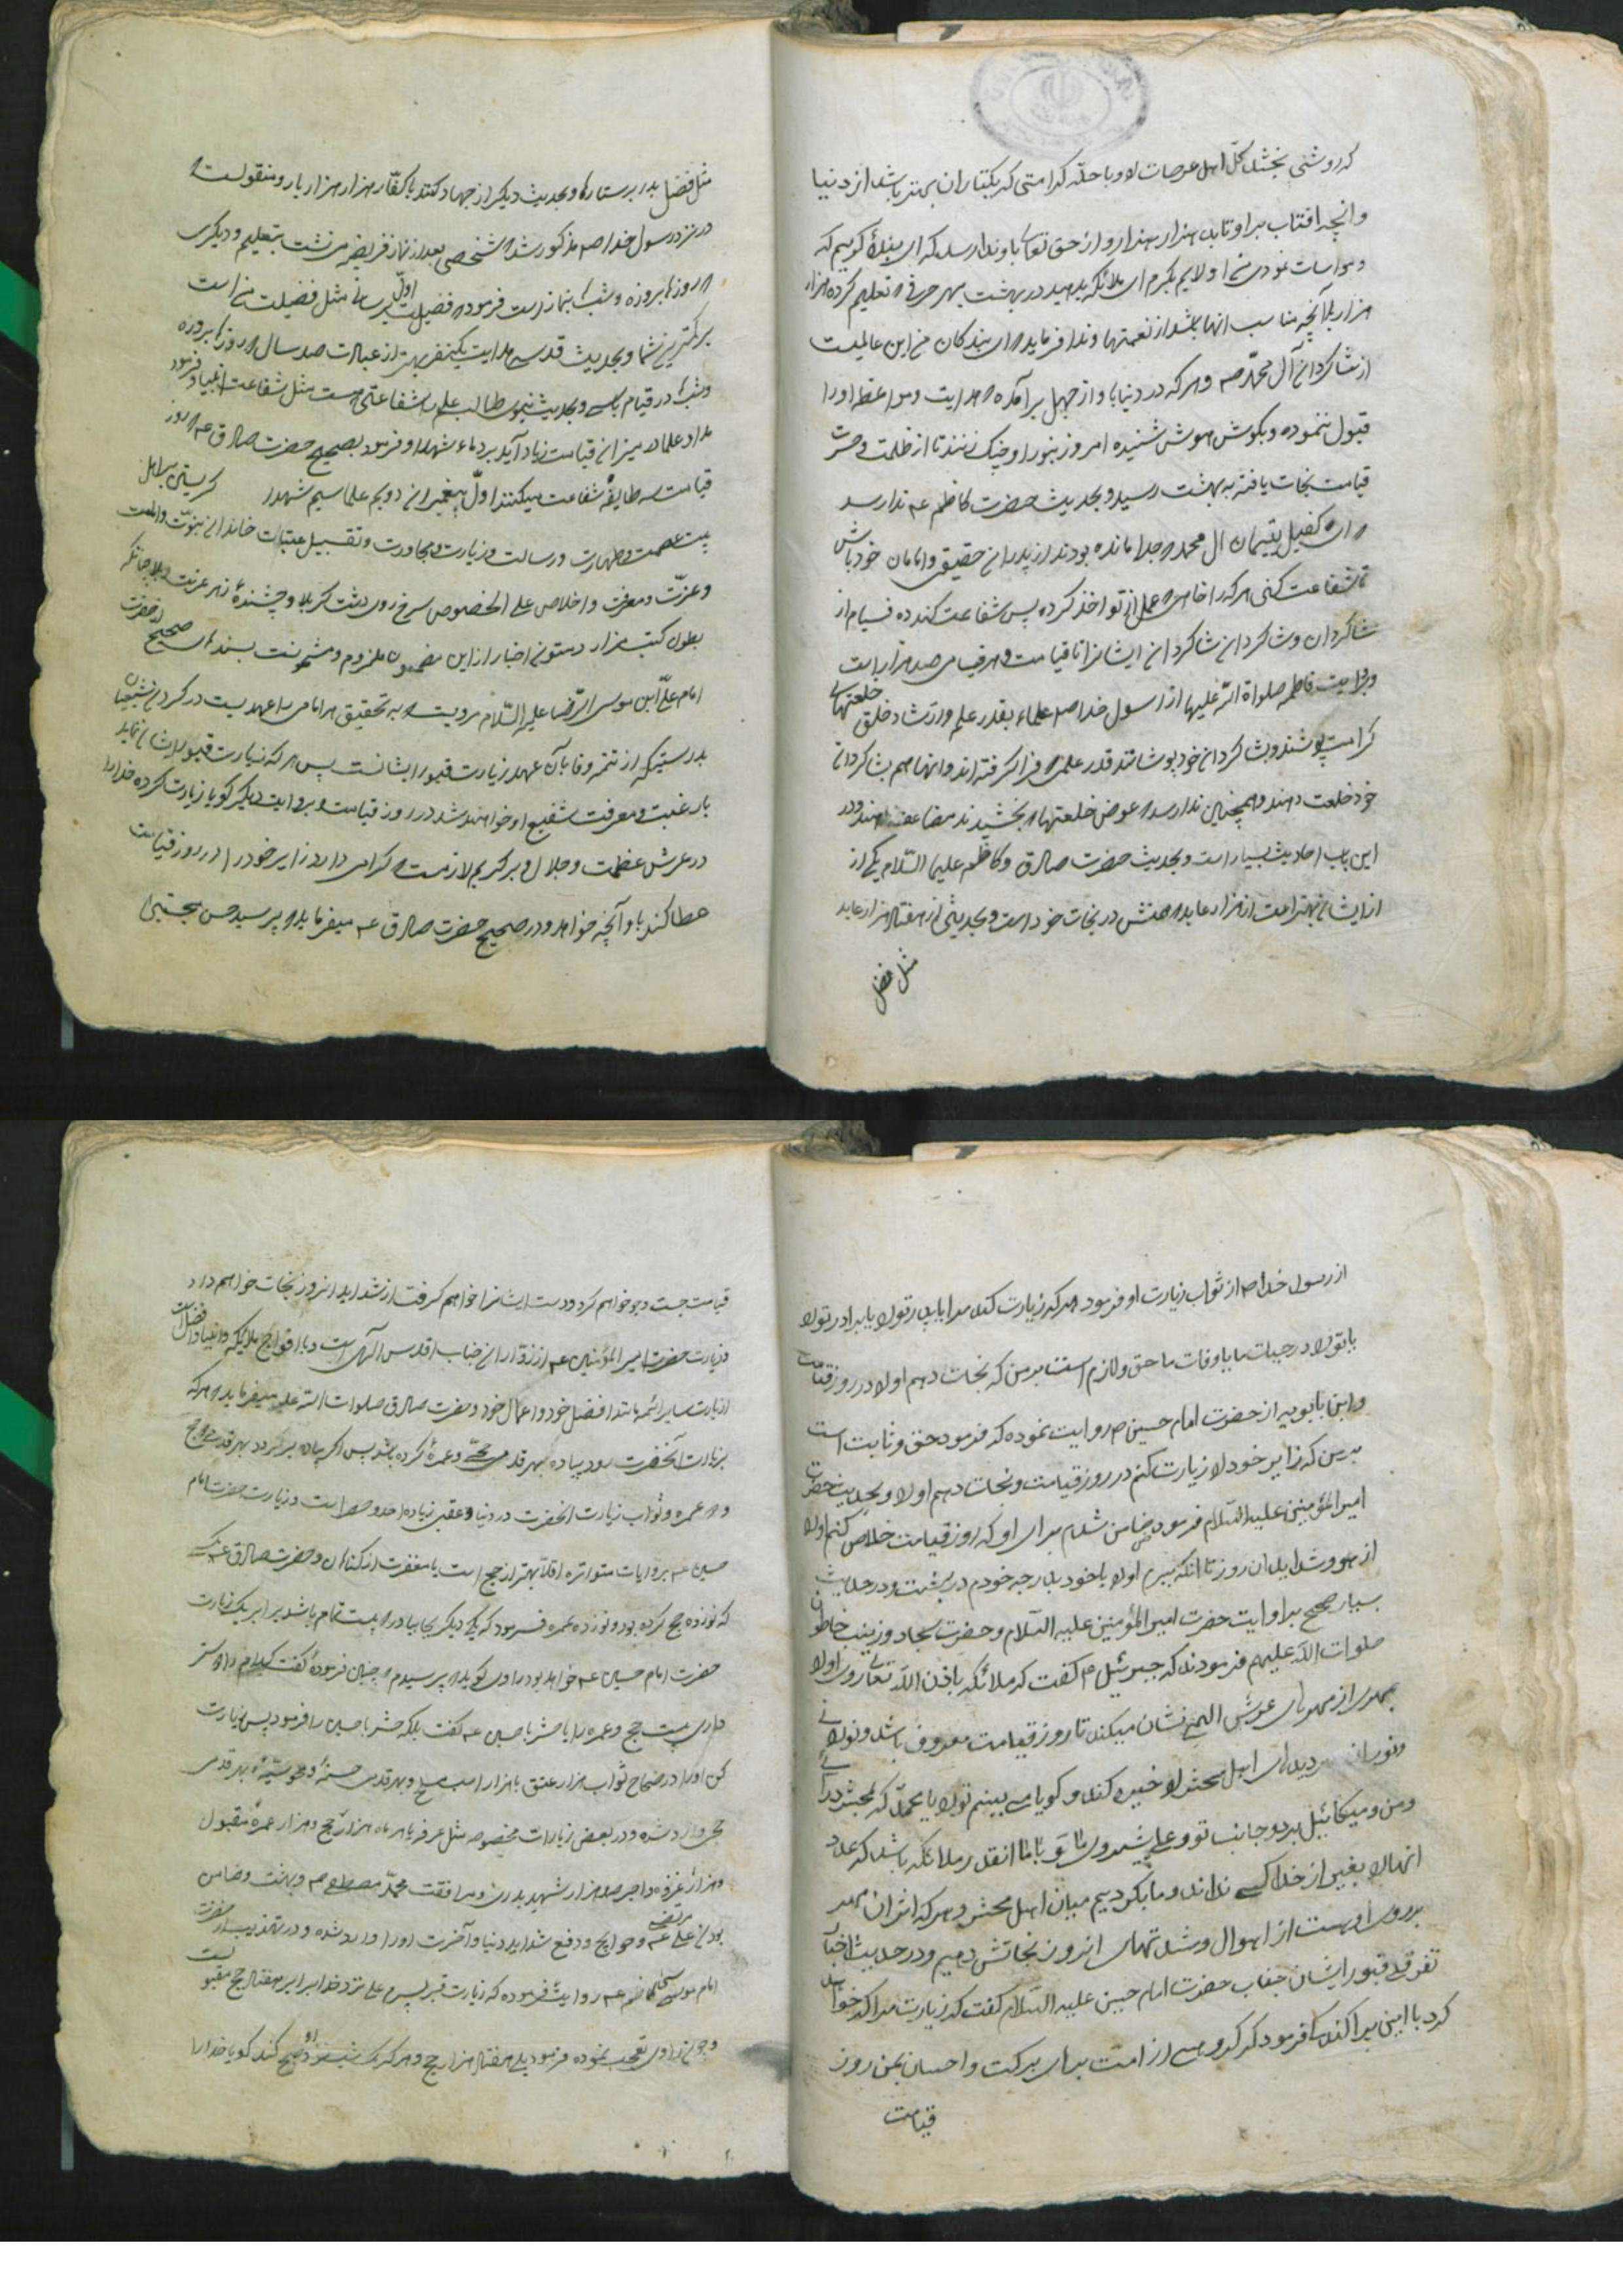 که روشنی بخشد کلّ اهل عرصات را و با حلّه کرامتی که یکتار آن بهتر باشد از دنیا
و آنچه افتاب براو تابد هزار هزار و از حق تعالی باو ندا رسد که ای بندهٔ کریم که
مواسات نمودی من اولایم بکرم ای ملائکه بدهید در بهشت بهر حرفی که تعلیم کرده هزار
هزار بلکه آنچه مناسب آنها باشد از نعمتها و ندا فرماید که ای بندکان من این عالمیست
از شاکردان آل محمّد صم و هرکه در دنیا باو از جهل برآمده و هدایت و مواعظ او را
قبول ننموده و بکوش هوش شنیده امروز بنور او چنک زنند تا از ظلمت وحشت
قیامت نجات یافته به بهشت رسید و بحدیث حضرت کاظم عم ندا رسد
که ای کفیل یتیمان ال محمد که جدا مانده بودند از پدران حقیقی و امامان خود باش
تا شفاعت کنی هرکه را خاهی که علم از تو اخذ کرده پس شفاعت کند ده فیام از
شاکردان و شاکردان شاکردان ایشانرا تا قیامت و هر فیامی صد هزار است
و بروایت فاطمه صلواة الله علیها از رسول خدا صم علماء بقدر علم و ارشاد خلق خلعتهای
کرامت پوشند و بشاکردان خود پوشانند قدر علمی که فرا کرفته اند و آنها هم بشاکردان
خود خلعت دهند و همچنین ندا رسد که عوض خلعتها که بخشیدند مضاعف دهند و در
این باب احادیث بسیار است و بحدیث حضرت صادق و کاظم علیها السّلام یکی از
از ایشان بهتر است از هزار عابد که همتش در نجات خود است و بحدیثی از هفتاد هزار عابد
مثل فضل
مثل فضل بدر بر ستارها و بحدیث دیکر از جهاد کنند با کفّار هزار هزار بار و منقولست که
در نزد رسول خدا صم مذکور شد که شخصی بعد از نماز فریضه می نشت بتعلیم و دیکری
که روزها بروزه و شبها بنماز است فرمود که فضیلت اوّل بر ثانی مثل فضیلت من است
بر کمترین شما و بحدیث قدسی هدایت یکنفر بهتر از عبادت صد سال که روزها بروزه
و شبها در قیام باشی و بحدیث نبوی طالب علم را شفاعتی هست مثل شفاعت انبیا و فرمود
مداد علما در میزان قیامت زیاد آید بر دماء شهدا و فرمود بصحیح حضرت صادق عم که روز
قیامت سه طایفه شفاعت میکنند اوّل پیغمبران دویم علما سیم شهدا
بیت عصمت و طهارت و رسالت و زیارت و مجاورت و تقبیل عتبات خاندان نبوّت و امامت
و عزّت و معرفت و اخلاص علی الخصوص سرخ روی دشت کربلا و چشندهٔ زهر غربت
بطون کتب مزار و متون اخبار از این مضمون ملزوم و مشحونست بسندهای صحیح از حضرت
امام علی ابن موسی الرّضا علیه السّلام مرویست که به تحقیق هر امامی را عهدیست در کردن شیعیان
بدرستیکه از تتمه وفا بآن عهد زیارت قبور ایشانست پس هر که زیارت قبور ایشان نماید
با رغبت و معرفت شفیع او خواهند شد در روز قیامت و بروایت دیکر کویا زیارت کرده خدا را
در عرش عظمت و جلال و بر کریم لازمست که کرامی دارد زایر خود را در روز قیامت
عطا کند باو آنچه خواهد و در صحیح حضرت صادق عم میفرماید که پرسید حسن مجتبی
از رسول خدا صم از ثواب زیارت او فرمود هرکه زیارت کند مرا یا پدر تو را یا برادر تو را
یا تو را در حیات ما یا وفات ما حق و لازم است برمن که نجات دهم او را در روز قیامت
و ابن بابویه از حضرت امام حسین ص روایت نموده که فرمود حق و ثابت است
برمن که زایر خود را زیارت کنم در روز قیامت و نجات دهم او را و بحدیث حضرت
امیر المؤمنین علیه السّلام فرمود ضامن شدم برای او که روز قیامت خلاص کنم او را
از هول و شداید ان روز تا انکه ببرم او را با خود بدرجه خودم در بهشت و در حدیث
بسیار صحیح بروایت حضرت امیر المؤمنین علیه السّلام و حضرت سجاد و زینب خاتون
صلوات الله علیهم فرمودند که جبرئیل ع م کفت که ملائکه باذن الله تعالی روی او را
بمهری از مهرهای عرش الهی نشان میکند تا روز قیامت معروف باشد و نورانی
دیدهای اهل محشر را خیره کند و کویا می بینم تو را یا محمّد که بمحشر درآئی
و من و میکائیل بر دو جانب تو و علی پیش روی ما و با ما انقدر ملائکه باشد که عدد
انها را بغیر از خدا کسی نداند و ما بکردیم میان اهل محشر و هرکه اثر ان مهر
بر روی او هست از اهوال و شدتهای انروز نجاتش دهیم و در حدیث اخبار
تفرقه قبور ایشان جناب حضرت امام حسین علیه السّلام کفت که زیارت مرا که خواهد
کرد با این پراکندکی فرمود که کروهی از امّت برای برکت و احسان بمن روز
قیامت
قیامت جست و جو خواهم کرد و دست ایشانرا خواهم کرفت از شداید انروز نجات خواهم داد
و زیارت حضرت امیر المؤمنین عم از زوّاران جناب اقدس آلهی است و با افواج ملائیکه و انبیا و افضل است
از زیارت سایر ائمه مانند افضل خود و اعمال خود و حضرت صادق صلوات الله علیه میفرماید که هرکه
بزیارت آنحضرت رود پیاده بهر قدمی حجّی و عمرهٔ کرده باشد پس اکر پیاده برکردد بهر قدمی دو حج
و دو عمره و ثواب زیارت انحضرت در دنیا و عقبی زیاده از حد و حصر است و زیارت حضرت امام
حسین عم بروایات متواتره اقلّا بهتر از حج است با مغفرت از کناهان و حضرت صادق عم بکسی
که نوزده حج کرده بود و نوزده عمره فرمود که یکی دیکر بجا بیاور که بیست تمام باشد برابر یک زیارت
حضرت امام حسین عم خواهد بود راوی کوید که پرسیدم که چنین فرموده کفت کدام دوستر
داری بیست حج و عمره را یا حشر با حسین عم کفت بلکه حشر با حسین را فرمود پس زیارت
کن او را و در صحاح ثواب هزار عتق با هزار اسب و بهر قدمی حسنهٔ و محو سیّئهٔ و بهر قدمی
حجی وارد شده و در بعض زیارات مخصوصه مثل عرفه یا هر ماه هزار حج و هزار عمرهٔ مقبول
و هزار غزوه و اجر صد هزار شهید بدری و مرافقت محمّد مصطفی صم و بهشت و ضامن
بودن علی مرتضی عم و حوایج و دفع شداید دنیا و آخرت او را وارد شده و در تهذیب از حضرت
امام موسی کاظم عم روایت فرموده که زیارت قبر پسرم علی نزد خدا برابر هفتاد حج مقبولست
و چون راوی تعجب نموده فرمود بلی هفتاد هزار حج و هرکه یک شب نزد او صبح کند کویا خدا را